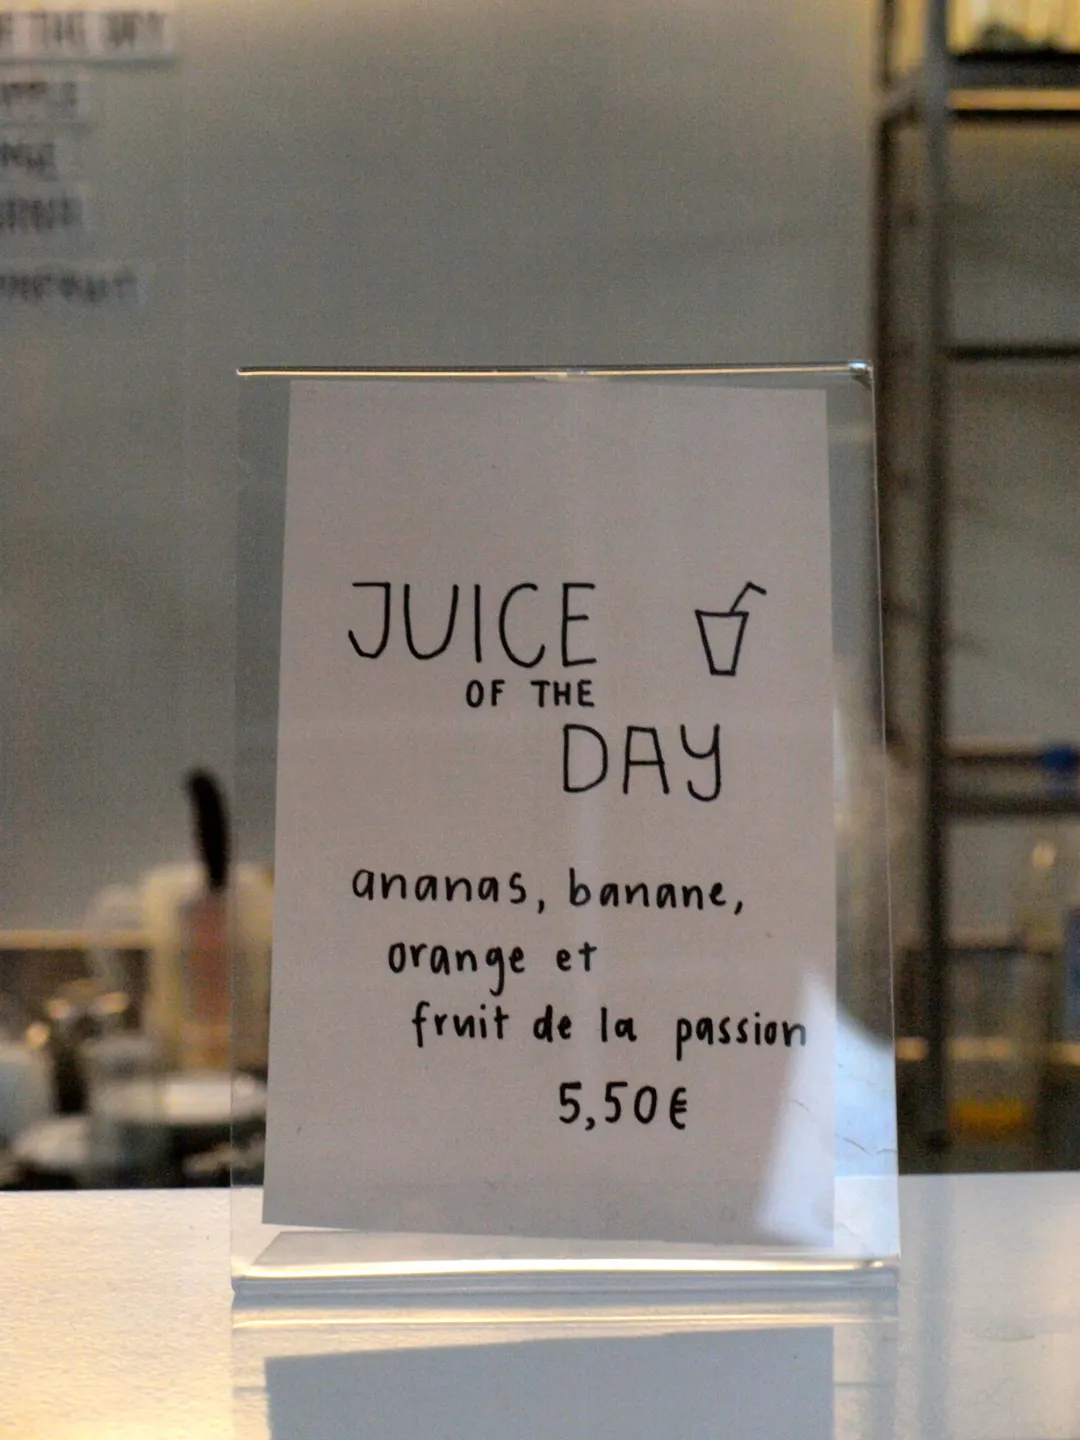 JUICE
OF THE
DAY
ananas, banane,
orange et
fruit de la passion
5,50€